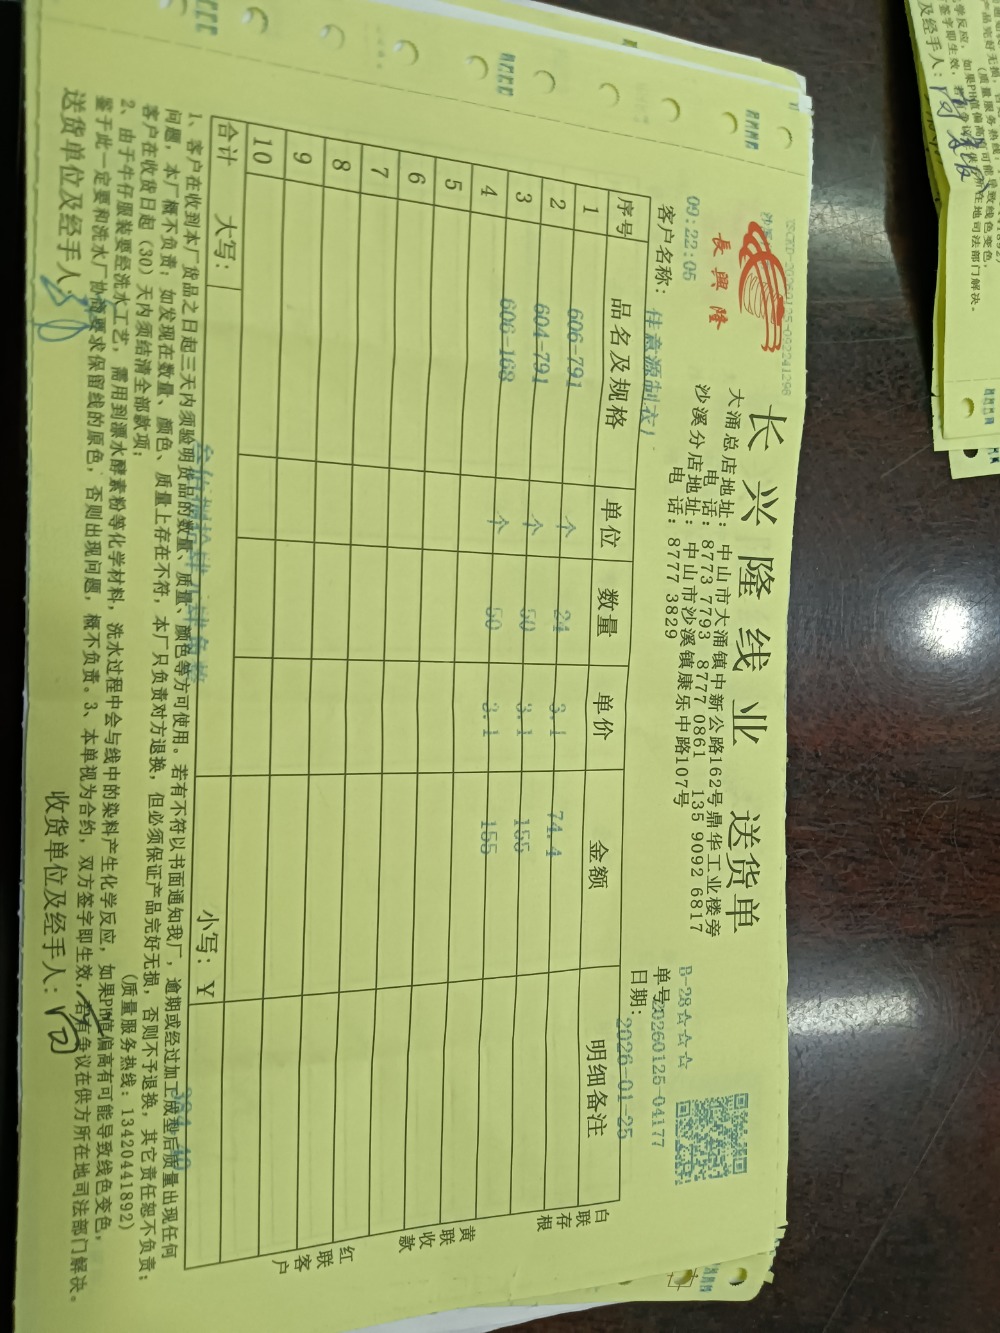 长兴隆线业 送货单
長興隆
大涌总店地址：中山市大涌镇中新公路162号鼎华工业楼旁
电话：8773 7793 8777 0861 135 9092 6817
沙溪分店地址：中山市沙溪镇康乐中路107号
电话：8777 3829
B-28☆☆☆
09:22:05
单号20260125-04177
客户名称：佳意源制衣1
日期：2026-01-25
序号 品名及规格 单位 数量 单价 金额 明细备注
1 606-791 个 24 3.1 74.4
2 604-791 个 50 3.1 155
3 606-168 个 50 3.1 155
4
5
6
7
8
9
10
合计 大写： 小写：￥
白联存根
黄联收款
红联客户
1、客户在收到本厂货品之日起三天内须验明货品的数量、质量、颜色等方可使用。若有不符以书面通知我厂，逾期或经过加工成型后质量出现任何
问题，本厂概不负责；如发现在数量、颜色、质量上存在不符，本厂只负责对方退换，但必须保证产品完好无损，否则不予退换，其它责任恕不负责；
客户在收货日起（30）天内须结清全部款项；
（质量服务热线：13420441892）
2、由于牛仔服装要经洗水工艺，需用到漂水酵素粉等化学材料，洗水过程中会与线中的染料产生化学反应，如果PH值偏高有可能导致线色变色，
鉴于此一定要和洗水厂协商要求保留线的原色，否则出现问题，概不负责。3、本单视为合约，双方签字即生效，若有争议在供方所在地司法部门解决。
送货单位及经手人：
收货单位及经手人：